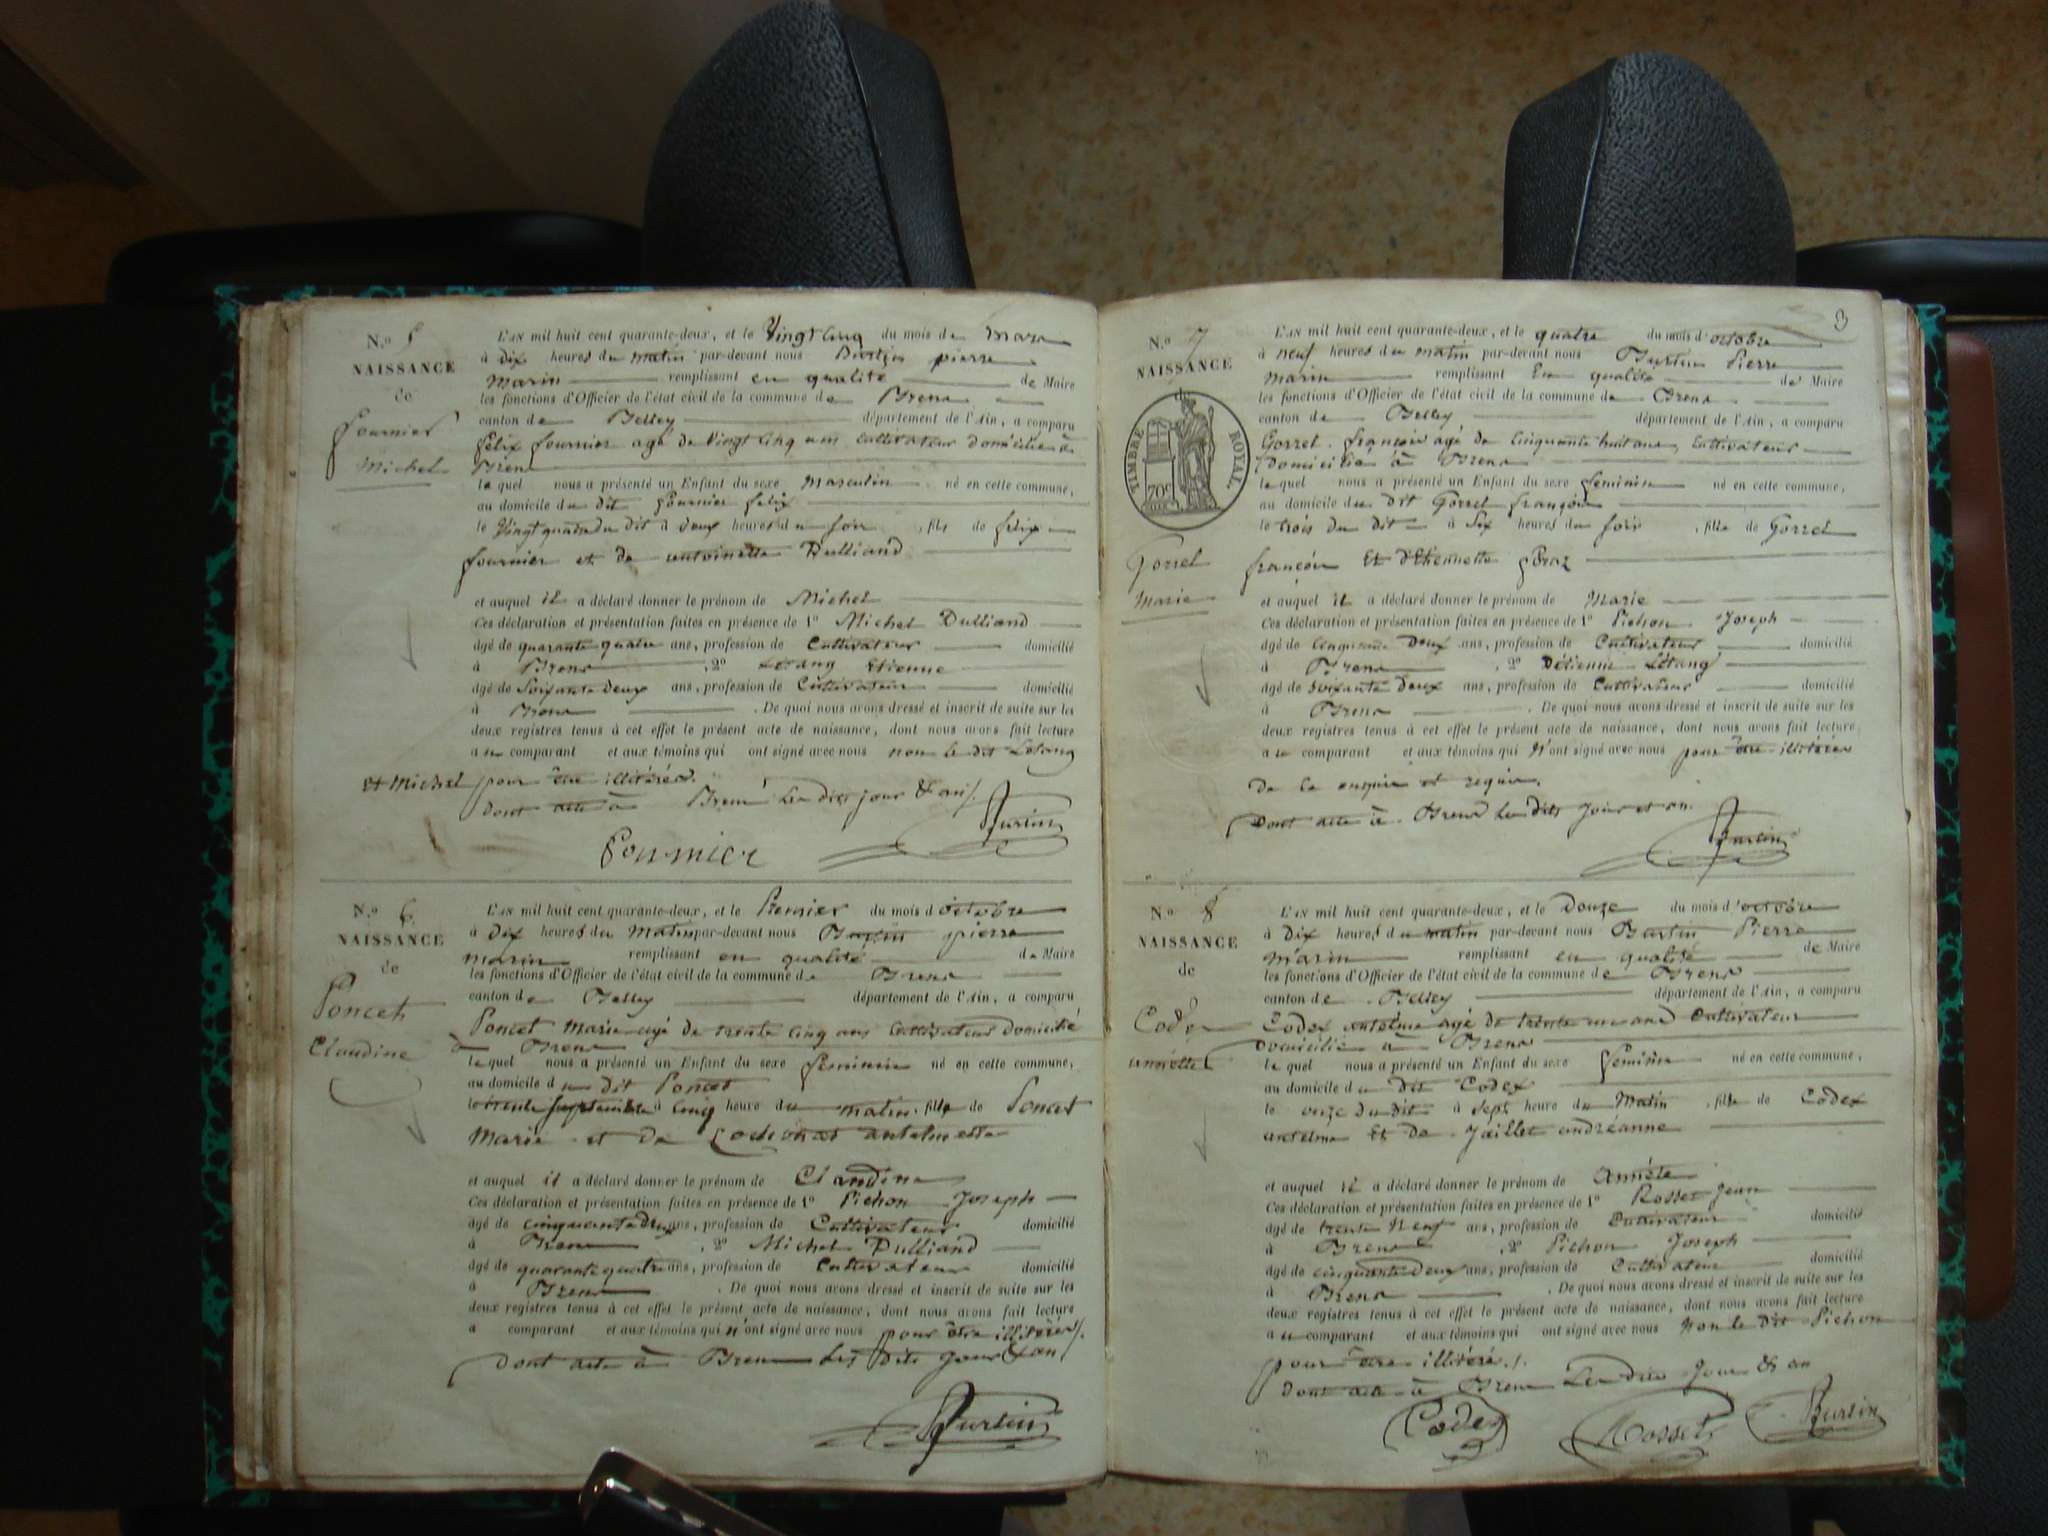 N.º 5
NAISSANCE
de
Fournier
Michel
L'AN mil huit cent quarante-deux, et le Vingt Cinq du mois de Mars
à dix heures du matin par-devant nous Burtin pierre
Marin remplissant en qualité de Maire
les fonctions d'Officier de l'état civil de la commune de Brens
canton de Belley département de l'Ain, a comparu
félix fournier agé de Vingt Cinq ans Cultivateur domicilié à
Brens
lequel nous a présenté un Enfant du sexe Masculin né en cette commune,
au domicile du dit fournier felix
le Vingt quatre du dit à deux heures du soir , fils de félix
fournier et de antoinette Dulliand
et auquel il a déclaré donner le prénom de Michel
Ces déclaration et présentation faites en présence de 1º Michel Dulliand
âgé de quarante quatre ans, profession de Cultivateur domicilié
à Brens , 2º Létang Etienne
âgé de Soixante deux ans, profession de Cultivateur domicilié
à Brens . De quoi nous avons dressé et inscrit de suite sur les
deux registres tenus à cet effet le présent acte de naissance, dont nous avons fait lecture
au comparant et aux témoins qui ont signé avec nous non le dit Létang
et Michel pour être illitérés.
Dont acte à Brens Les dits jour & an
Fournier
Burtin
N.º 6
NAISSANCE
de
Poncet
Claudine
L'AN mil huit cent quarante-deux, et le Premier du mois d'octobre
à Dix heures du Matin par-devant nous Burtin pierre
marin remplissant en qualité de Maire
les fonctions d'Officier de l'état civil de la commune de Brens
canton de Belley département de l'Ain, a comparu
Poncet Marie agé de trente cinq ans Cultivateur domicilié
à Brens
lequel nous a présenté un Enfant du sexe feminin né en cette commune,
au domicile du dit Poncet
le trente septembre à Cinq heure du matin , fille de Poncet
Marie et de antelmette
et auquel il a déclaré donner le prénom de Claudine
Ces déclaration et présentation faites en présence de 1º Pichon Joseph
âgé de cinquante deux ans, profession de Cultivateur domicilié
à Brens , 2º Michel Dulliand
âgé de quarante quatre ans, profession de Cultivateur domicilié
à Brens . De quoi nous avons dressé et inscrit de suite sur les
deux registres tenus à cet effet le présent acte de naissance, dont nous avons fait lecture
a comparant et aux témoins qui n'ont signé avec nous pour être illitérés
Dont acte à Brens Les dits jour & an
Burtin
3
N.º 7
NAISSANCE
TIMBRE ROYAL
70c
Gorrel
Marie
L'AN mil huit cent quarante-deux, et le quatre du mois d'octobre
à neuf heures du matin par-devant nous Burtin Pierre
Marin remplissant En qualité de Maire
les fonctions d'Officier de l'état civil de la commune de Brens
canton de Belley département de l'Ain, a comparu
Gorrel françois agé de Cinquante huit ans, Cultivateur
domicilié à Brens
lequel nous a présenté un Enfant du sexe féminin né en cette commune,
au domicile du dit Gorrel françois
le trois du dit à Six heures du soir , fille de Gorrel
françois Et d'Etiennette
et auquel il a déclaré donner le prénom de Marie
Ces déclaration et présentation faites en présence de 1º Pichon Joseph
âgé de cinquante Deux ans, profession de Cultivateur domicilié
à Brens , 2º Létang
âgé de Soixante Deux ans, profession de Cultivateur domicilié
à Brens . De quoi nous avons dressé et inscrit de suite sur les
deux registres tenus à cet effet le présent acte de naissance, dont nous avons fait lecture
au comparant et aux témoins qui N'ont signé avec nous pour être illitérés
De ce enquis et requis.
Dont acte à Brens Les dits Jour et an.
Burtin
N.º 8
NAISSANCE
de
Codex
L'AN mil huit cent quarante-deux, et le Douze du mois d'octobre
à Dix heures du matin par-devant nous Burtin Pierre
Marin remplissant en qualité de Maire
les fonctions d'Officier de l'état civil de la commune de Brens
canton de Belley département de l'Ain, a comparu
Codex antelme agé de trente un ans Cultivateur
Domicilié à Brens
lequel nous a présenté un Enfant du sexe féminin né en cette commune,
au domicile du dit Codex
le onze du dit à Sept heure du Matin , fille de Codex
antelme Et de Jaillet andréanne
et auquel il a déclaré donner le prénom de
Ces déclaration et présentation faites en présence de 1º Rosset Jean
âgé de trente Neuf ans, profession de Cultivateur domicilié
à Brens , 2º Pichon Joseph
âgé de cinquante Deux ans, profession de Cultivateur domicilié
à Brens . De quoi nous avons dressé et inscrit de suite sur les
deux registres tenus à cet effet le présent acte de naissance, dont nous avons fait lecture
au comparant et aux témoins qui ont signé avec nous Non le dit Pichon
pour être illitéré.
Dont acte à Brens Les dits Jour & an
Codex
Rosset
Burtin